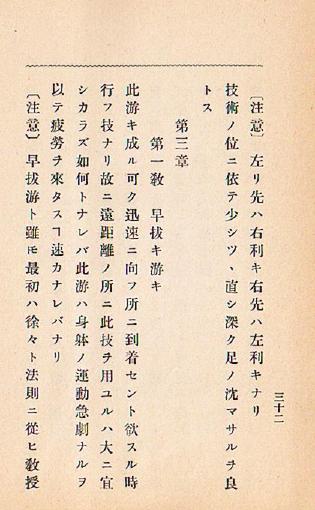 三十二
〔注意〕左リ先ハ右利キ右先ハ左利キナリ
技術ノ位ニ依テ少シツヽ直シ深ク足ノ沈マサルヲ良
トス
第三章
第一敎 早拔キ游キ
此游キ成ル可ク迅速ニ向フ所ニ到着セント欲スル時
行フ技ナリ故ニ遠距離ノ所ニ此技ヲ用ユルハ大ニ宜
シカラズ如何トナレバ此游ハ身躰ノ運動急劇ナルヲ
以テ疲勞ヲ來タスヿ速カナレバナリ
〔注意〕早拔游ト雖モ最初ハ徐々ト法則ニ從ヒ敎授